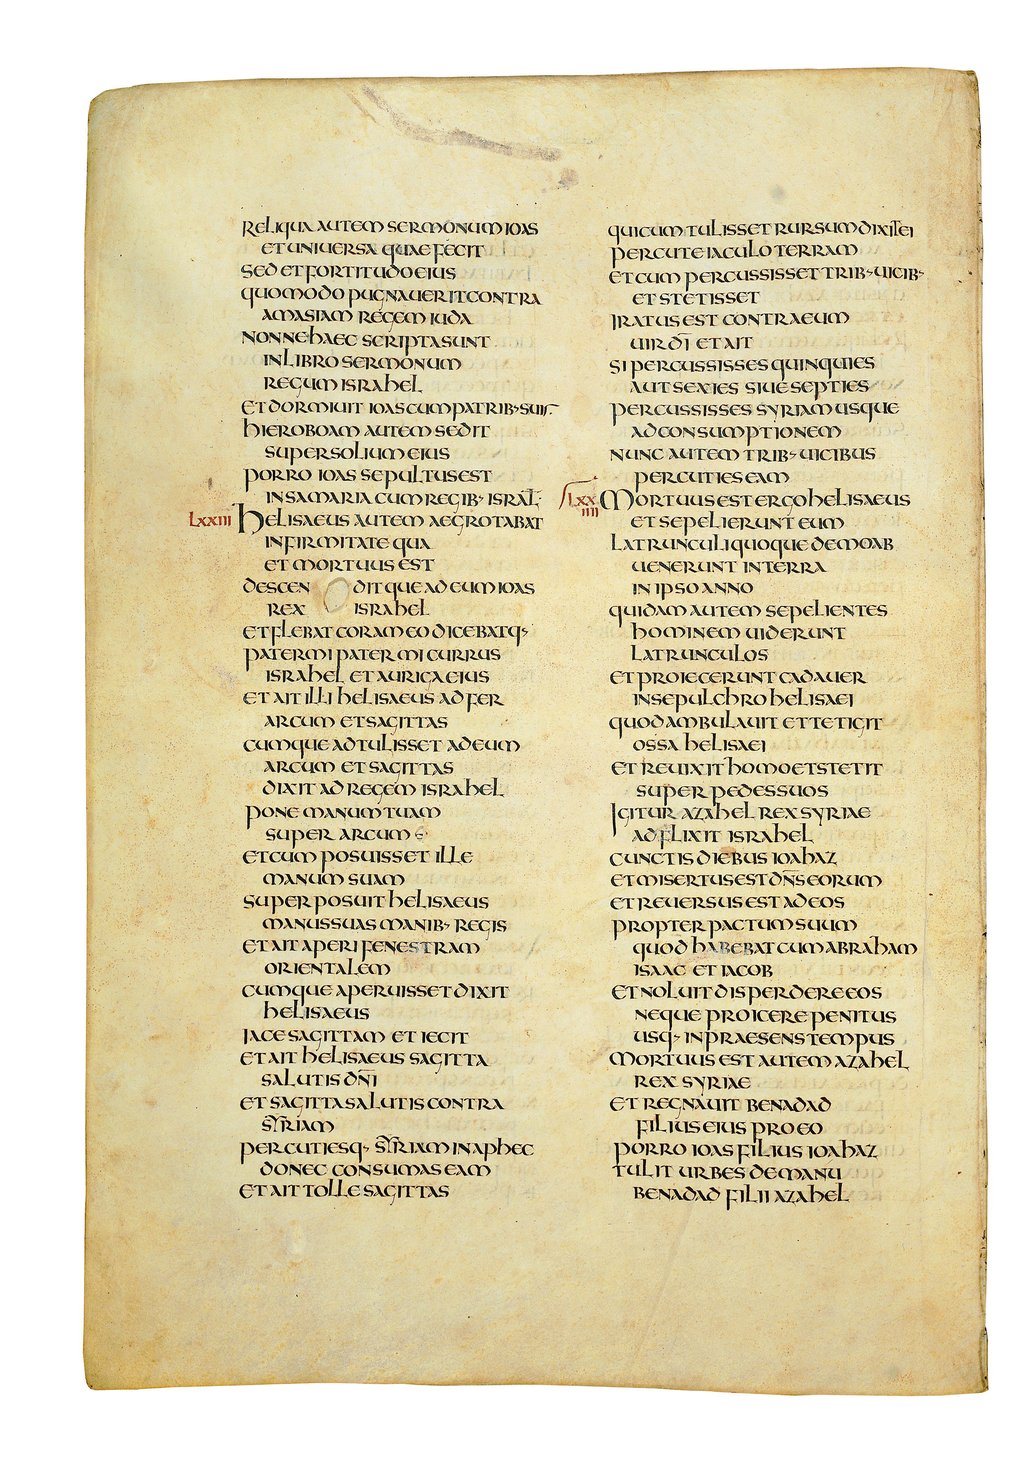 RELIQUA AUTEM SERMONUM IOAS
ET UNIVERSA QUAE FECIT
SED ET FORTITUDO EIUS
QUOMODO PUGNAUERIT CONTRA
AMASIAM REGEM IUDA
NONNE HAEC SCRIPTA SUNT
IN LIBRO SERMONUM
REGUM ISRAHEL
ET DORMIUIT IOAS CUM PATRIB· SUIS
HIEROBOAM AUTEM SEDIT
SUPER SOLIUM EIUS
PORRO IOAS SEPULTUS EST
IN SAMARIA CUM REGIB· ISRAL̅
LXXIII HELISAEUS AUTEM AEGROTABAT
INFIRMITATE QUA
ET MORTUUS EST
DESCENDITQUE AD EUM IOAS
REX ISRAHEL
ET FLEBAT CORAM EO DICEBATQ·
PATER MI PATER MI CURRUS
ISRAHEL ET AURIGA EIUS
ET AIT ILLI HELISAEUS ADFER
ARCUM ET SAGITTAS
CUMQUE ADTULISSET AD EUM
ARCUM ET SAGITTAS
DIXIT AD REGEM ISRAHEL
PONE MANUM TUAM
SUPER ARCUM
ET CUM POSUISSET ILLE
MANUM SUAM
SUPERPOSUIT HELISAEUS
MANUS SUAS MANIB· REGIS
ET AIT APERI FENESTRAM
ORIENTALEM
CUMQUE APERUISSET DIXIT
HELISAEUS
IACE SAGITTAM ET IECIT
ET AIT HELISAEUS SAGITTA
SALUTIS DN̅I
ET SAGITTA SALUTIS CONTRA
SYRIAM
PERCUTIESQ· SYRIAM IN APHEC
DONEC CONSUMAS EAM
ET AIT TOLLE SAGITTAS
QUI CUM TULISSET RURSUM DIXIT EI
PERCUTE IACULO TERRAM
ET CUM PERCUSSISSET TRIB· UICIB·
ET STETISSET
IRATUS EST CONTRA EUM
UIR DI ET AIT
SI PERCUSSISSES QUINQUIES
AUT SEXIES SIUE SEPTIES
PERCUSSISSES SYRIAM USQUE
AD CONSUMPTIONEM
NUNC AUTEM TRIB· UICIBUS
PERCUTIES EAM
LXXIIII MORTUUS EST ERGO HELISAEUS
ET SEPELIERUNT EUM
LATRUNCULI QUOQUE DE MOAB
UENERUNT IN TERRA
IN IPSO ANNO
QUIDAM AUTEM SEPELIENTES
HOMINEM UIDERUNT
LATRUNCULOS
ET PROIECERUNT CADAUER
IN SEPULCHRO HELISAEI
QUOD AMBULAUIT ET TETIGIT
OSSA HELISAEI
ET REUIXIT HOMO ET STETIT
SUPER PEDES SUOS
IGITUR AZAHEL REX SYRIAE
ADFLIXIT ISRAHEL
CUNCTIS DIEBUS IOAHAZ
ET MISERTUS EST DN̅S EORUM
ET REUERSUS EST AD EOS
PROPTER PACTUM SUUM
QUOD HABEBAT CUM ABRAHAM
ISAAC ET IACOB
ET NOLUIT DISPERDERE EOS
NEQUE PROICERE PENITUS
USQ· IN PRAESENS TEMPUS
MORTUUS EST AUTEM AZAHEL
REX SYRIAE
ET REGNAUIT BENADAD
FILIUS EIUS PRO EO
PORRO IOAS FILIUS IOAHAZ
TULIT URBES DE MANU
BENADAD FILII AZAHEL